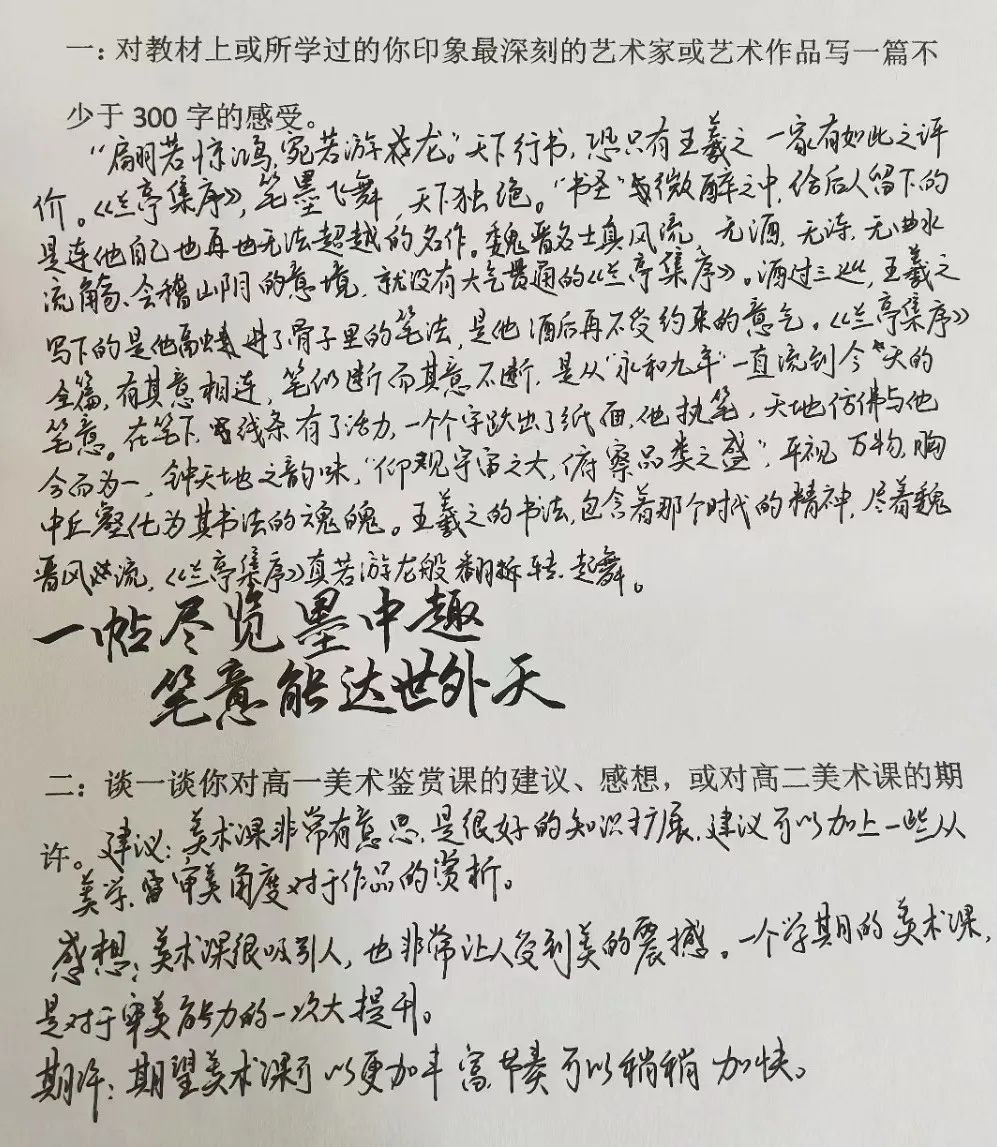 一：对教材上或所学过的你印象最深刻的艺术家或艺术作品写一篇不
少于 300 字的感受。
“翩若惊鸿，宛若游龙。”天下行书，恐只有王羲之一家有如此之评
价。《兰亭集序》，笔墨飞舞，天下独绝。“书圣”微醉之中，给后人留下的
是连他自己也再也无法超越的名作。魏晋名士真风流，无酒，无诗，无曲水
流觞、会稽山阴的意境，就没有大气贯通的《兰亭集序》。酒过三巡，王羲之
写下的是他融进了骨子里的笔法，是他酒后再不受约束的意气。《兰亭集序》
全篇，有其意相连，笔断而其意不断，是从“永和九年”一直流到今天的
笔意。在笔下，线条有了活力，一个个字跃出了纸面，他执笔，天地仿佛与他
合而为一，钟天地之韵味，“仰观宇宙之大，俯察品类之盛”，平视万物，胸
中丘壑化为其书法的魂魄。王羲之的书法，包含着那个时代的精神，尽着魏
晋风流，《兰亭集序》真若游龙般翻折转起舞。
一帖尽览墨中趣
笔意能达世外天
二：谈一谈你对高一美术鉴赏课的建议、感想，或对高二美术课的期
许。建议：美术课非常有意思，是很好的知识扩展，建议可以加上一些从
美学、审美角度对于作品的赏析。
感想：美术课很吸引人，也非常让人受到美的震撼。一个学期的美术课，
是对于审美能力的一次大提升。
期许：期望美术课可以更加丰富，节奏可以稍稍加快。